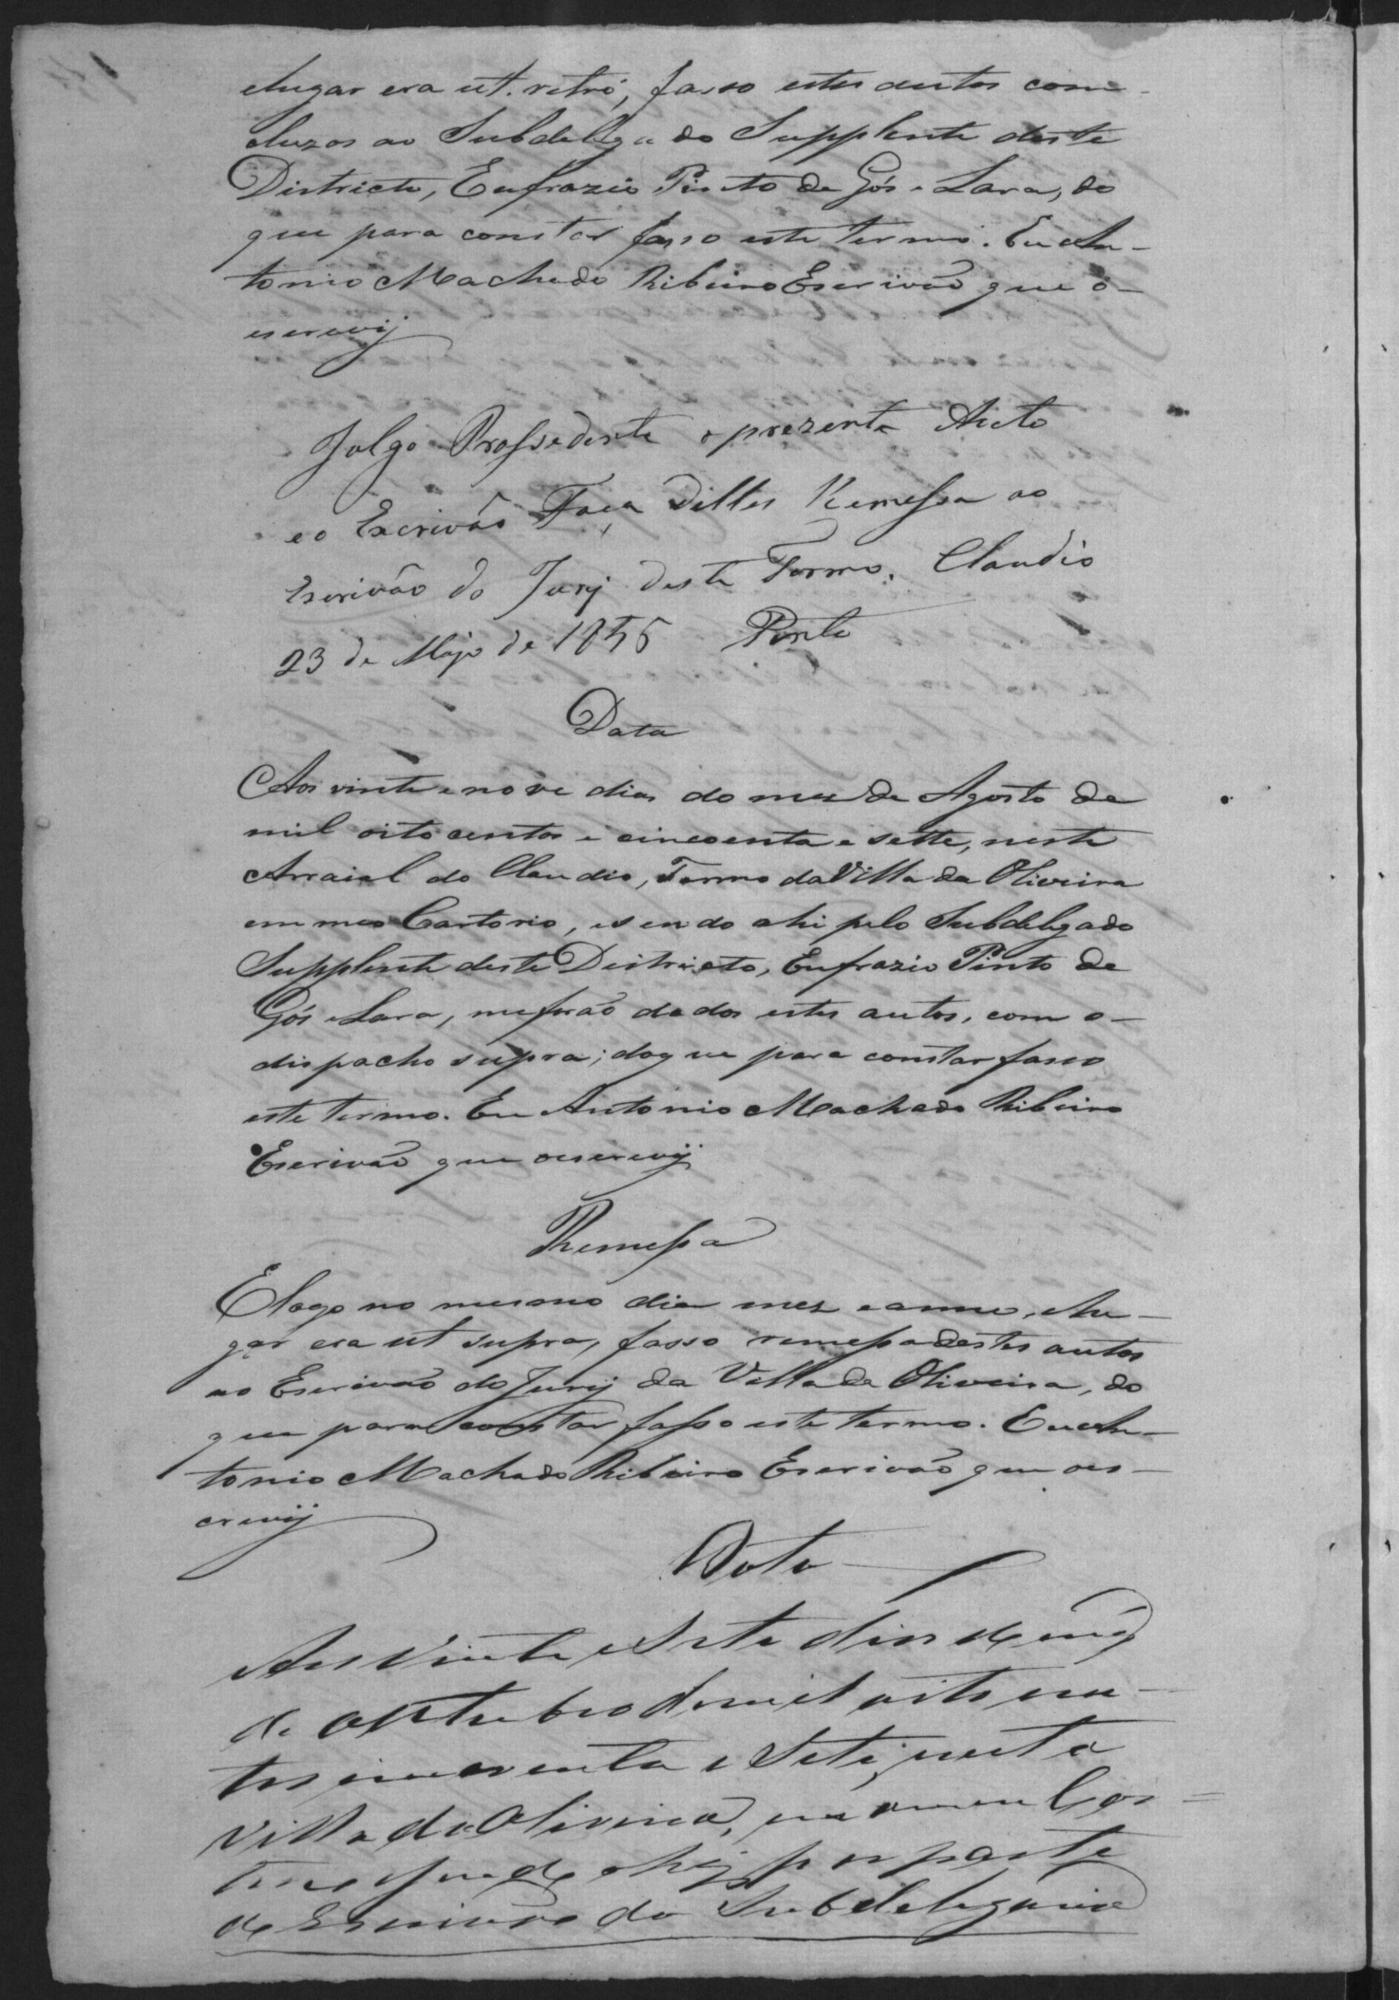 elugar era ut retró, fasso estes autos com-
cluzos ao Subdelegado Supplente deste
Districto, Eufrazio Pinto de Gós e Lara, do
que para constar fasso este termo. Eu An-
tonio Machado Ribeiro Escrivão que o-
escrevij
Julgo Prossedente o prezente Auto
e o Escrivão Faça delles Remessa ao
Escrivão do Jury deste Termo. Claudio
23 de Majo de 1856 Pinto
Data
Aos vinte e nove dias do mes de Agosto de
mil oito centos e cincoenta e sette, neste
Arraial do Claudio, Termo da Villa da Oliveira
em meo Cartorio, e sendo ahi pelo Subdelgado
Supplente deste Districto, Eufrazio Pinto de
Gós e Lara, me forão dados estes autos, com o-
dispacho supra; do que para constar fasso
este termo. Eu Antonio Machado Ribeiro
Escrivão que oescrevij
Remessa
E logo no mesmo dia mez e anno, elu-
gar era ut supra, fasso remessa destes autos
ao Escrivão do Jury da Villa da Oliveira, do
que para constar fasso este termo. Eu An-
tonio Machado Ribeiro Escrivão que oes-
crevij
Data
Aos vinte e sete dias do mez
de Outubro de mil oito cen-
tos cincoenta e Sete, nesta
Villa da Oliveira, em o meu Car-
torio sendo ahi, por parte
do Escrivão da Subdelegacia